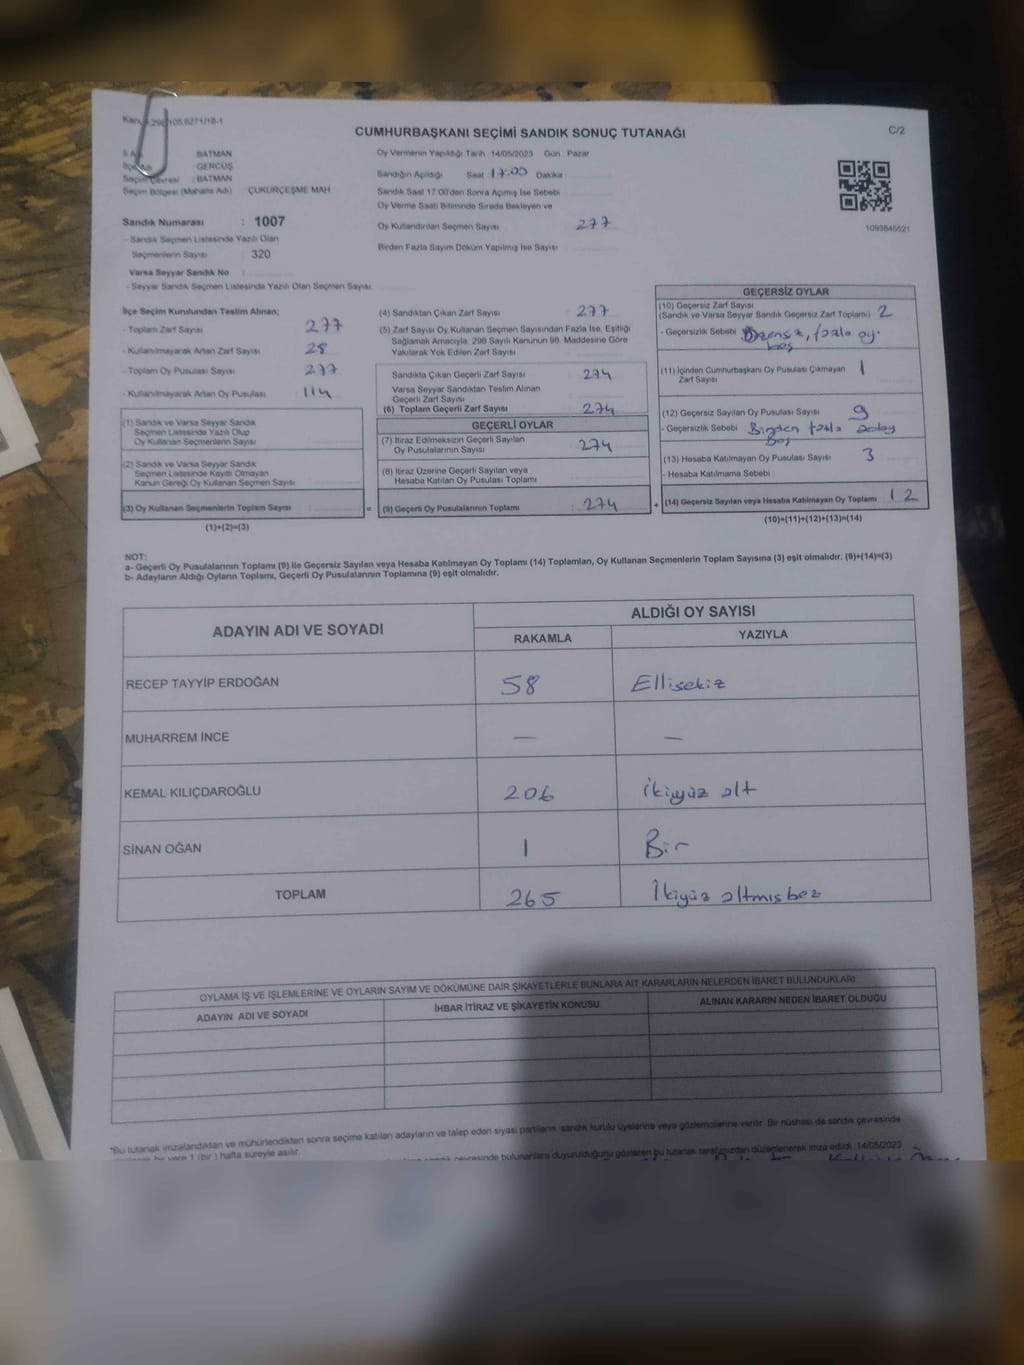 CUMHURBAŞKANI SEÇİMİ SANDIK SONUÇ TUTANAĞI
C/2
BATMAN
GERCÜŞ
Seçim Çevresi : BATMAN
Seçim Bölgesi (Mahalle Adı) ÇUKURÇEŞME MAH
Oy Vermenin Yapıldığı Tarih :14/05/2023 Gün : Pazar
Sandığın Açıldığı Saat 17.00 Dakika
Sandık Saat 17:00'den Sonra Açımış İse Sebebi
Oy Verme Saati Bitiminde Sırada Bekleyen ve
Oy Kullandırılan Seçmen Sayısı 277
Birden Fazla Sayım Döküm Yapılmış İse Sayısı
1093845521
Sandık Numarası : 1007
- Sandık Seçmen Listesinde Yazılı Olan
Seçmenlerin Sayısı : 320
Varsa Seyyar Sandık No :
- Seyyar Sandık Seçmen Listesinde Yazılı Olan Seçmen Sayısı
İlçe Seçim Kurulundan Teslim Alınan;
- Toplam Zarf Sayısı 277
- Kullanılmayarak Artan Zarf Sayısı 28
- Toplam Oy Pusulası Sayısı 277
- Kullanılmayarak Artan Oy Pusulası 114
(1) Sandık ve Varsa Seyyar Sandık
Seçmen Listesinde Yazılı Olup
Oy Kullanan Seçmenlerin Sayısı
(2) Sandık ve Varsa Seyyar Sandık
Seçmen Listesinde Kayıtlı Olmayan
Kanun Gereği Oy Kullanan Seçmen Sayısı
(3) Oy Kullanan Seçmenlerin Toplam Sayısı
(1)+(2)=(3)
=
(4) Sandıktan Çıkan Zarf Sayısı : 277
(5) Zarf Sayısı Oy Kullanan Seçmen Sayısından Fazla İse, Eşitliği
Sağlamak Amacıyla, 298 Sayılı Kanunun 98. Maddesine Göre
Yakılarak Yok Edilen Zarf Sayısı
Sandıkta Çıkan Geçerli Zarf Sayısı : 274
Varsa Seyyar Sandıktan Teslim Alınan
Geçerli Zarf Sayısı
(6) Toplam Geçerli Zarf Sayısı : 274
GEÇERLİ OYLAR
(7) İtiraz Edilmeksizin Geçerli Sayılan
Oy Pusulalarının Sayısı : 274
(8) İtiraz Üzerine Geçerli Sayılan veya
Hesaba Katılan Oy Pusulası Toplamı
(9) Geçerli Oy Pusulalarının Toplamı : 274
+
GEÇERSİZ OYLAR
(10) Geçersiz Zarf Sayısı
(Sandık ve Varsa Seyyar Sandık Geçersiz Zarf Toplamı) 2
- Geçersizlik Sebebi fazla oy.
boş
(11) İçinden Cumhurbaşkanı Oy Pusulası Çıkmayan
Zarf Sayısı 1
(12) Geçersiz Sayılan Oy Pusulası Sayısı 9
- Geçersizlik Sebebi : Birden fazla aday
boş
(13) Hesaba Katılmayan Oy Pusulası Sayısı 3
- Hesaba Katılmama Sebebi
(14) Geçersiz Sayılan veya Hesaba Katılmayan Oy Toplamı 12
(10)+(11)+(12)+(13)=(14)
NOT:
a- Geçerli Oy Pusulalarının Toplamı (9) ile Geçersiz Sayılan veya Hesaba Katılmayan Oy Toplamı (14) Toplamları, Oy Kullanan Seçmenlerin Toplam Sayısına (3) eşit olmalıdır. (9)+(14)=(3)
b- Adayların Aldığı Oyların Toplamı, Geçerli Oy Pusulalarının Toplamına (9) eşit olmalıdır.
ADAYIN ADI VE SOYADI
ALDIĞI OY SAYISI
RAKAMLA YAZIYLA
RECEP TAYYİP ERDOĞAN 58 Ellisekiz
MUHARREM İNCE — —
KEMAL KILIÇDAROĞLU 206 ikiyüz alt
SİNAN OĞAN 1 Bir
TOPLAM 265 İkiyüz altmışbez
OYLAMA İŞ VE İŞLEMLERİNE VE OYLARIN SAYIM VE DÖKÜMÜNE DAİR ŞİKAYETLERLE BUNLARA AİT KARARLARIN NELERDEN İBARET BULUNDUKLARI
ADAYIN ADI VE SOYADI İHBAR İTİRAZ VE ŞİKAYETİN KONUSU ALINAN KARARIN NEDEN İBARET OLDUĞU
*Bu tutanak imzalandıktan ve mühürlendikten sonra seçime katılan adayların ve talep eden siyasi partilerin sandık kurulu üyelerine veya gözlemcilerine verilir. Bir nüshası da sandık çevresinde
bir yere 1 (bir) hafta süreyle asılır.
çevresinde bulunanlara duyurulduğunu gösteren bu tutanak tarafımızdan düzenlenerek imza edildi. 14/05/2023